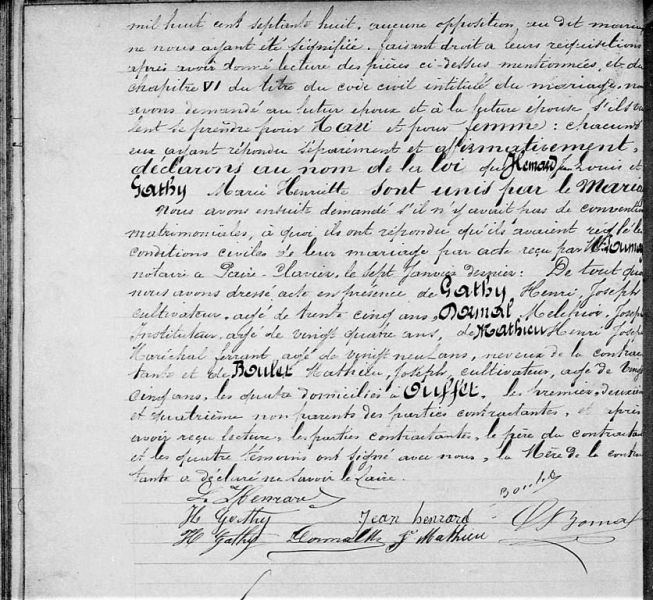 mil huit cent septante huit. aucune opposition au dit maria
ne nous ayant été signifiée. faisant droit a leurs requisitions
après avoir donné lecture des pièces ci-dessus mentionnées, et du
chapitre VI du titre du code civil intitulé du mariage, no
avons demandé au futur epoux et à la future épouse s'ils
lent se prendre pour Mari et pour femme : chacun d
eux ayant répondu séparément et affirmativement,
déclarons au nom de la loi que Henrard Jean Louis et
Gathy Marie Henriette sont unis par le Maria
Nous avons ensuite demandé s'il n'y avait pas de convention
matrimoniales, à quoi ils ont répondu qu'ils avaient reglé le
conditions civiles de leur mariage par acte reçu par
notaire a Clavier, le sept Janvier dernier : De tout quoi
nous avons dressé acte en présence de Gathy Henri, Joseph
cultivateur, agé de trente cinq ans, Dormal Joseph
Instituteur, agé de vingt quatre ans, de Mathieu Henri Josep
Maréchal ferrant agé de vingt neuf ans, neveux de la contrac
tante et de Boulet Mathieu, Joseph, cultivateur, agé de vingt
cinq ans, les quatre domiciliés à Ouffet, les premier, deuxièm
et quatrième non parents des parties contractantes, et après
avoir reçu lecture, les parties contractantes, le père du contractant
et les quatre témoins ont signé avec nous, la Mère de la contrac
tante a déclaré ne savoir le faire.
L. Henrard
H Gathy Jean henrard
H Gathy J Mathieu